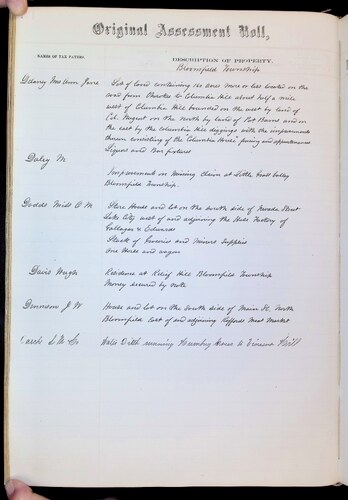 Original Assessment Roll,
NAMES OF TAX PAYERS.
DESCRIPTION OF PROPERTY.
Bloomfield Township
Delany Mrs Ann Jane
Lot of land containing 160 acres more or less located on the
road from Cherokee to Columbia Hill about half a mile
west of Columbia Hill bounded on the west by land of
Col. Nugent on the North by land of Pat Barne and on
the east by the Columbia Hill diggings with the improvements
thereon consisting of the Columbia House fencing and appurtenances
Liquors and Bar fixtures
Daley M
Improvement on Mining claim at Little Grass Valley
Bloomfield Township.
Dodds Mill O M
Store House and lot on the south side of Nevada Street
Lake City west of and adjoining the Hall Factory of
Gallager & Edwards
Stock of Groceries and Miners Supplies
One Horse and wagon
Davis Hugh
Residence at Relief Hill Bloomfield Township
Money secured by note
Dennison J W
House and lot on the South side of Main St. North
Bloomfield East of and adjoining Meat Market
Ditch running from House to